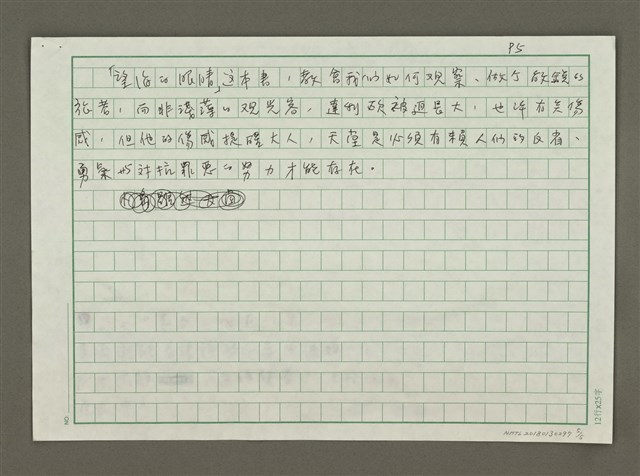 P5
「望海的眼睛」這本書，教會我們如何觀察、做個敏銳的
旅者，而非淺薄的觀光客，達利改被迫長大，也許有美傷
感，但他的傷感提醒大人，天堂是必須有賴人們的反省、
勇氣與對抗罪惡的努力才能存在。
NO.
12行×25字
NMTL20180130097 5/5